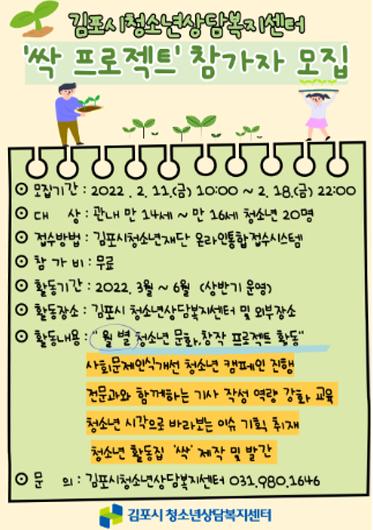 김포시청소년상담복지센터
'싹 프로젝트' 참가자 모집
⊙ 모집기간 : 2022. 2. 11.(금) 10:00 ~ 2. 18.(금) 22:00
⊙ 대 상 : 관내 만 14세 ~ 만 16세 청소년 20명
⊙ 접수방법 : 김포시청소년재단 온라인통합접수시스템
⊙ 참 가 비 : 무료
⊙ 활동기간 : 2022. 3월 ~ 6월 (상반기 운영)
⊙ 활동장소 : 김포시 청소년상담복지센터 및 외부장소
⊙ 활동내용 : "월별 청소년 문화,창작 프로젝트 활동"
사회문제인식개선 청소년 캠페인 진행
전문과와 함께하는 기사 작성 역량 강화 교육
청소년 시각으로 바라보는 이슈 기획 취재
청소년 활동집 '싹' 제작 및 발간
⊙ 문 의 : 김포시청소년상담복지센터 031.980.1646
김포시 청소년상담복지센터